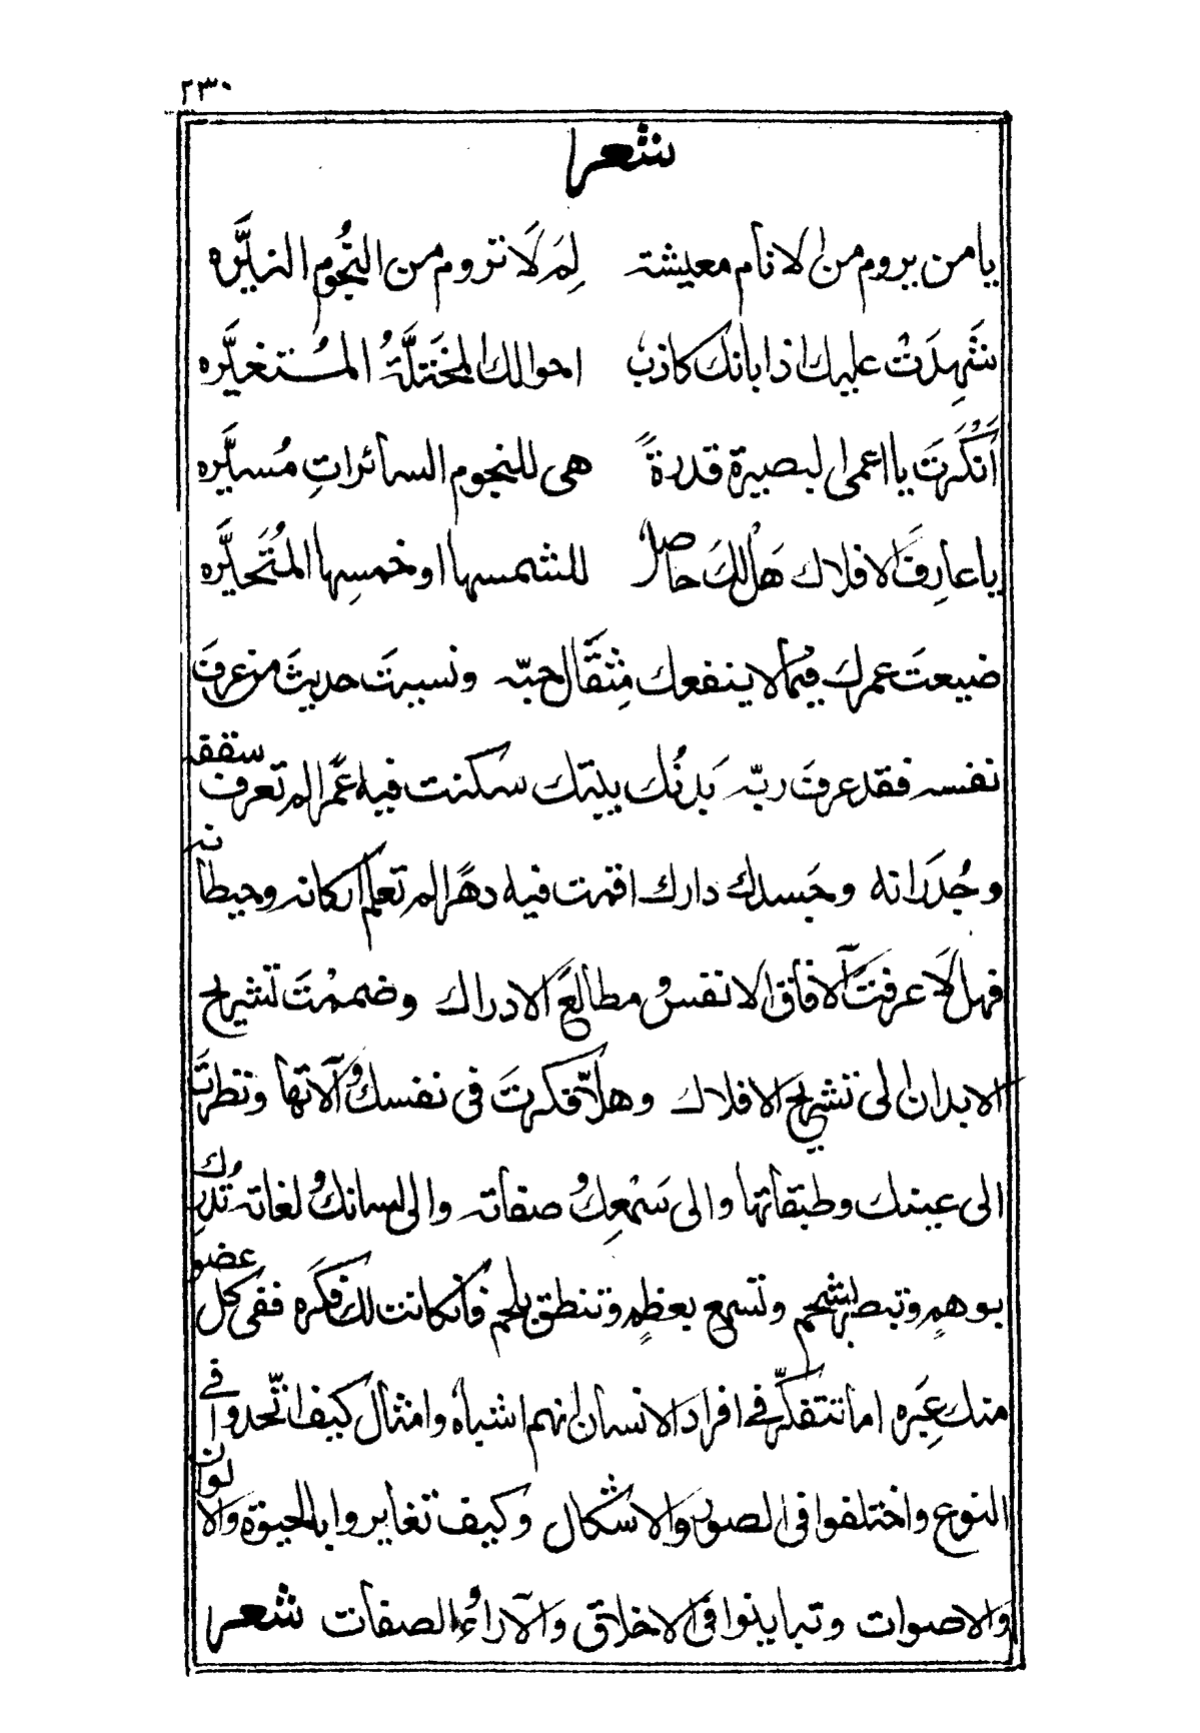 ٢٣٠
شعرا
يا من يروم من الانام معيشته لِمَ لَا تروم من النجُوم النيَّره
شَهِدَتْ عليك اذا بانك كاذب احوالك المختَلَّةُ المُستغيَّره
اَنْكَرتَ يا اعمى البصيرة قدرةً هى للنجوم السائراتِ مُسيَّره
يا عارِفَ الافلاك هَلْ لكَ حاصل للشمسها او خمسِها المُتَحيَّره
ضيعتَ عمرك فيما لا ينفعك مِثقَال حبّه ونسيت حديثَ من عرفَ
نفسه فقد عرفَ ربّه بَدنُك بيتك سكنت فيه عمرًا لم تعرف سقفه
وجُدرَانه وجَسدك دارك اقمت فيه دهرًا لم تعلم اركانه وحيطانه
فهل لَا عرفتَ آلافاق الانفس مطالعَ الادراك وضممْتَ تشريح
الابدان الى تشريح الافلاك وهلّا فكرتَ فى نفسك وآلاتها ونظرتَ
الى عينك وطبقاتها والى سَمْعِك وصفاته والى لسانك ولغاته تُدرِك
بوهمٍ وتبصر بشحم وتسمع بعظمٍ وتنطق بلحم فان كانت لك فكَره ففى كل عضو
منك عِبَره اما تتفكّر فى افراد الانسان انهم اشباه وامثال كيف اتّحدوا فى
النوع واختلفوا فى الصور والاشكال وكيف تغايروا بالحيوة والالوان
والاصوات وتباينوا فى الاخلاق والآراء والصفات شعرا